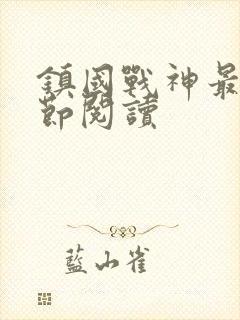 鎮國戰神最
節閱讀
藍山雀